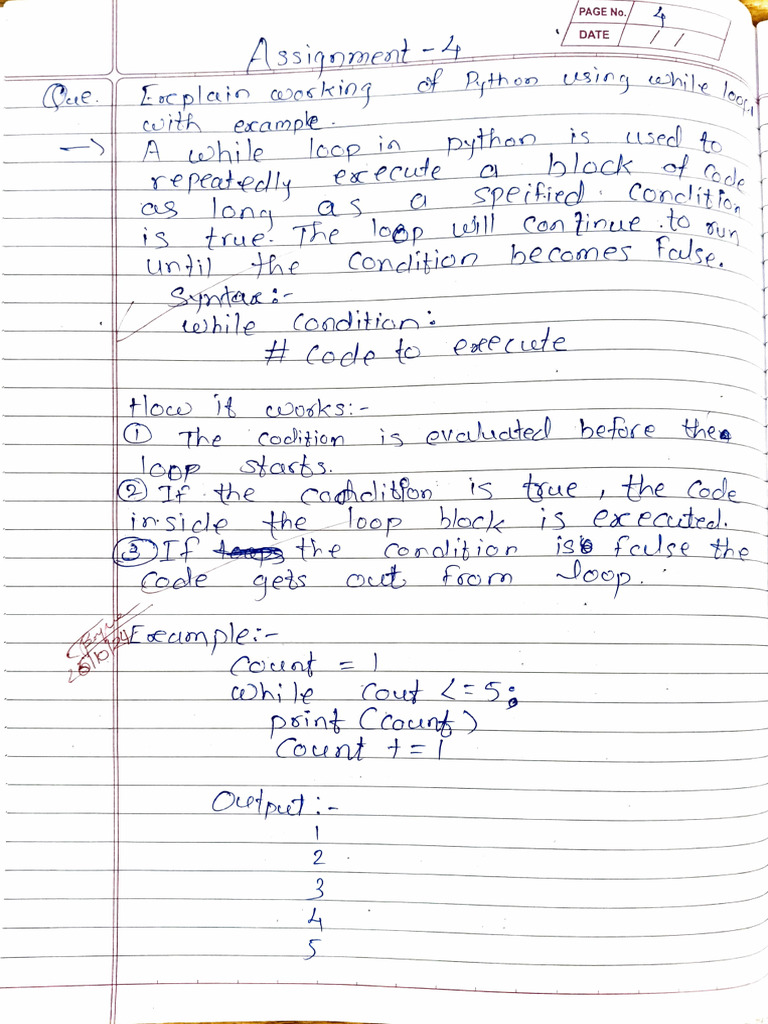 PAGE No. 4
DATE / /
Assignment - 4
Que. Explain working of Python using while loop.
with example.
→ A while loop in python is used to
repeatedly execute a block of code
as long as a speified condition
is true. The loop will continue to run
until the condition becomes false.
Syntax:-
while condition:
# code to execute
How it works:-
① The codition is evaluated before the
loop starts.
② If the condition is true, the code
inside the loop block is executed.
③ If the condition is false the
code gets out from loop.
25/10/24
Example:-
Count = 1
while cout <= 5:
print (count)
Count += 1
Output:-
1
2
3
4
5